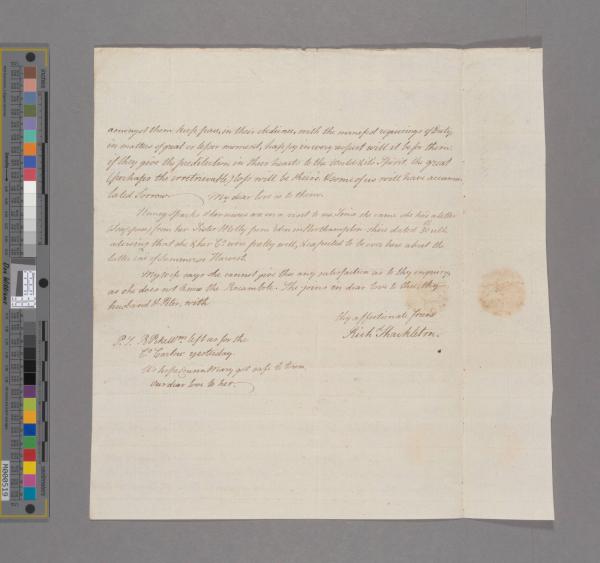 amongst them keep pace, in their obedience, with the manifest requirings of Duty
in matters of great or lesser moment, happy in every respect will it be for them:
if they give the predilection in their hearts to the World & its Spirit the great
(perhaps the irretrievable) loss will be theirs. & some of us will have accumu-
lated Sorrow. My dear love is to them.
Nancy Sparks & her nurse are on a visit to us. Since she came she has a letter
(I suppose) from her Sister Molly from in Northampton shire dated 30 ulto
advising that she & her Co were pretty well, & expected to be over here about the
latter end of Summer or Harvest.
My Wife says she cannot give thee any satisfaction as to thy enquiry,
as she does not know the Rocambole. She joins in dear love to thee, thy
husband & Peter, with
thy affectionate friend
Rich Shackleton.
P.S. left us for the
Co Carlow yesterday.
We hope Mary got safe to Town
our dear love to her.
inches
centimetres
M000519